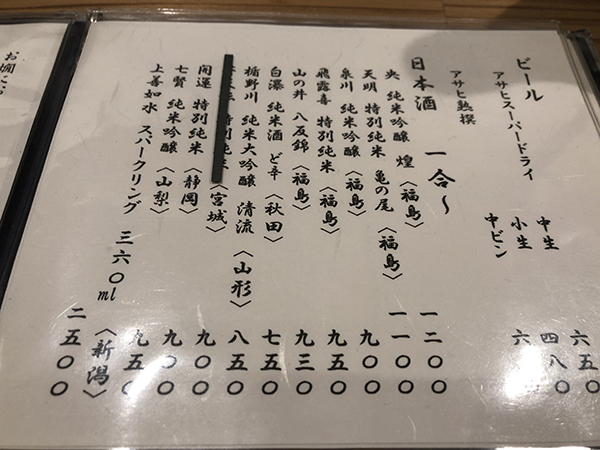 ビール
アサヒスーパードライ 中生 六五〇
小生 四八〇
アサヒ熟撰 中ビン 六
日本酒 一合〜
央 純米吟醸 煌〈福島〉 一二〇〇
天明 特別純米 亀の尾〈福島〉 一一〇〇
泉川 純米吟醸〈福島〉 九〇〇
飛露喜 特別純米〈福島〉 九五〇
山の井 八反錦〈福島〉 九三〇
白瀑 純米酒 ど辛〈秋田〉 七五〇
楯野川 純米大吟醸 清流〈山形〉 八五〇
特別純米〈宮城〉 九〇〇
開運 特別純米〈静岡〉 九〇〇
七賢 純米吟醸〈山梨〉 九五〇
上善如水 スパークリング 三六〇ml〈新潟〉 二五〇〇